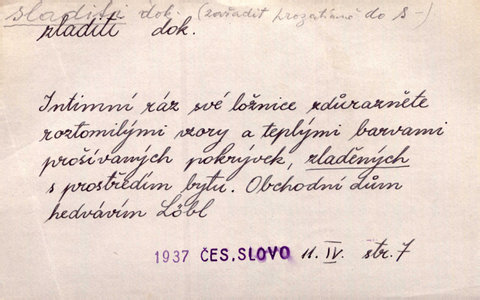 sladiti dok. (zařadit prozatímně do s-)
zladiti dok.
Intimní ráz své ložnice zdůrazněte
roztomilými vzory a teplými barvami
prošívaných pokrývek, zladěných
s prostředím bytu. Obchodní dům
hedvávím Löbl
1937 ČES. SLOVO 11. IV. str. 7